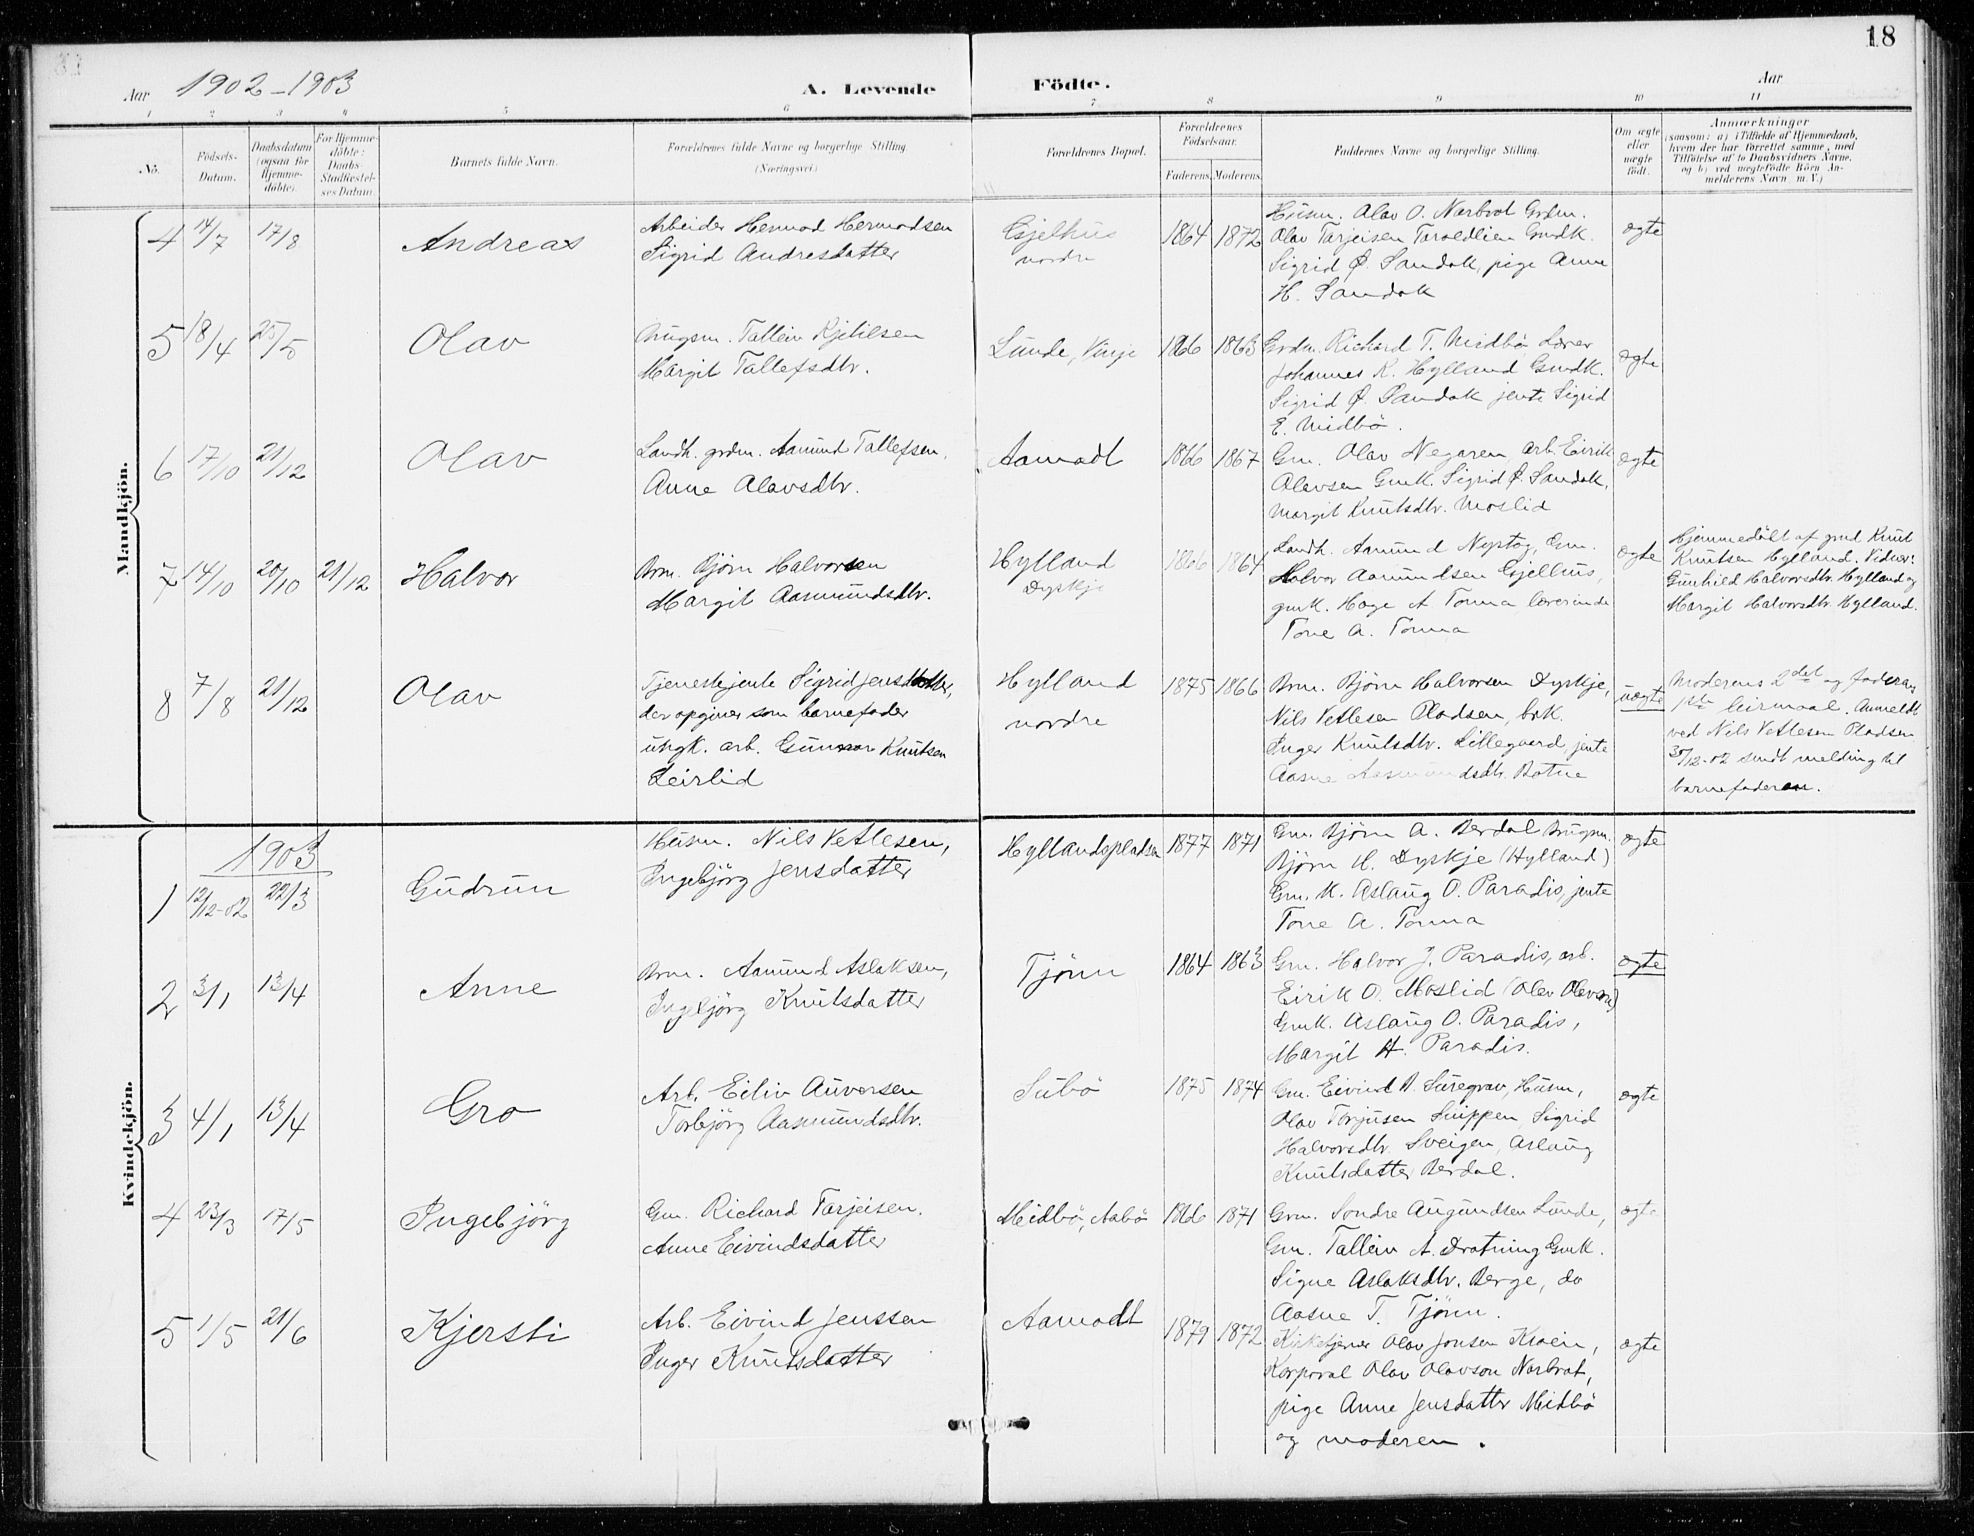 18
Aar 1902-1903 A. Levende Födte. Aar
1 2 3 4 5 6 7 8 9 10 11
No. Födsels-Datum. Daabsdatum (ogsaa for Hjemmedöbte). For Hjemmedöbte: Daabs-Stadfæstelses Datum. Barnets fulde Navn. Forældrenes fulde Navne og borgerlige Stilling. (Næringsvei.) Forældrenes Bopæl. Forældrenes Födselsaar. Faderens. Moderens. Faddernes Navne og borgerlige Stilling. Om ægte eller uægte födt. Anmærkninger (saasom: a) i Tilfælde af Hjemmedaab, hvem der har forrettet samme, med Tilföielse af to Daabsvidners Navne, og b) ved uægtefödte Börn Anmelderens Navn m. V.)
Mandkjön.
4 14/7 17/8 Andreas
Arbeider Hermod Hermodsen
Sigrid Andresdatter
Gjelhus
nordre
1864 1872
Husm. Olav O. Narbrot Grdm.
Olav Tarjeisen Taraldlien Gmdk.
Sigrid Ø. Sandok, pige Anne
H. Sandok
ægte
5 18/4 25/5 Olav
Brugsm. Talleiv Kjetilsen
Margit Tallefsdtr.
Lunde, Vinje
1866 1863
Grdm. Richard T. Midbö Lærer
Johannes K. Hylland Gmdk.
Sigrid Ø. Sandok jente Sigrid
E. Midbö.
ægte
6 17/10 21/12 Olav
Landh. grdm. Aamund Tallefsen,
Anne Olavsdtr.
Aamodt
1866 1867
Gm. Olav Negaren, arb. Eirik
Olavsen Gmk. Sigrid Ø. Sandok,
Margit Knutsdtr. Moslid
ægte
7 14/10 20/10 21/12 Halvor
Brm. Bjørn Halvorsen
Margit Aasmundsdtr.
Hylland
Dyskje
1866 1864
Landh. Aamund Nystog, Gm.
Halvor Aamundsen Gjelhus,
gmk. Hæge A Tonna lærerinde
Tone A. Tonna
ægte
Hjemmedöbt af grd Knut
Knutsen Hylland. Vidner:
Gunhild Halvorsdtr. Hylland og
Margit Halvorsdtr. Hylland.
8 7/8 21/12 Olav
Tjenestejente Sigrid Jensdatter,
der opgiver som barnefader
ungk. arb. Gunnar Knutsen
Leirlid
Hylland
nordre
1875 1866
Brm. Bjørn Halvorsen Dyskje,
Nils Vetlesen Pladsen, brk.
Inger Knutsdtr. Lillegaard, jente
Aasne Aasmundsdtr. Botne
uægte
Moderens 2det og faderens
1ste leirmaal. Anmeldt
ved Nils Vetlesen Pladsen
30/12-02 sendt melding til
barnefaderen.
Kvindekjön.
1903
1 12/12-02 22/3 Gudrun
Husm. Nils Vetlesen,
Ingebjörg Jensdatter
Hyllandspladsen
1877 1871
Gm. Bjørn A. Berdal Brugsm.
Bjørn H. Dyskje (Hylland)
Gm. K. Aslaug O. Paradis, jente
Tone A. Tonna
ægte
2 3/1 13/4 Anne
Brm. Aamund Aslaksen,
Ingebjörg Knutsdatter
Tjönn
1864 1863
Gm. Halvor J. Paradis, arb.
Eirik O. Moslid (Olav Olavson)
Gmk. Aslaug O. Paradis,
Margit H. Paradis.
ægte
3 4/1 13/4 Gro
Arb. Eiliv Auversen
Torbjörg Aasmundsdtr.
Subö
1875 1874
Gm. Eivind B. Suregrav, Husm,
Olav Torjusen Snippen, Sigrid
Halvorsdtr. Sveigen, Aslaug
Knutsdatter Berdal.
ægte
4 23/3 17/5 Ingebjörg
Gm. Richard Tarjeisen.
Anne Eivindsdatter
Midbö, Aabö
1866 1871
Grm. Sondre Augundsen Lunde,
Gm. Talleiv A. Drotning Gmk.
Signe Aslaksdtr. Berge, do
Aasne T. Tjönn.
ægte
5 1/5 21/6 Kjersti
Arb. Eivind Jenssen
Inger Knutsdatter
Aamodt
1879 1872
Kirketjener Olav Jonsen Kroein,
Korporal Olav Olavson Narbrot,
pige Anne Jensdatter Midbö
og moderen.
ægte